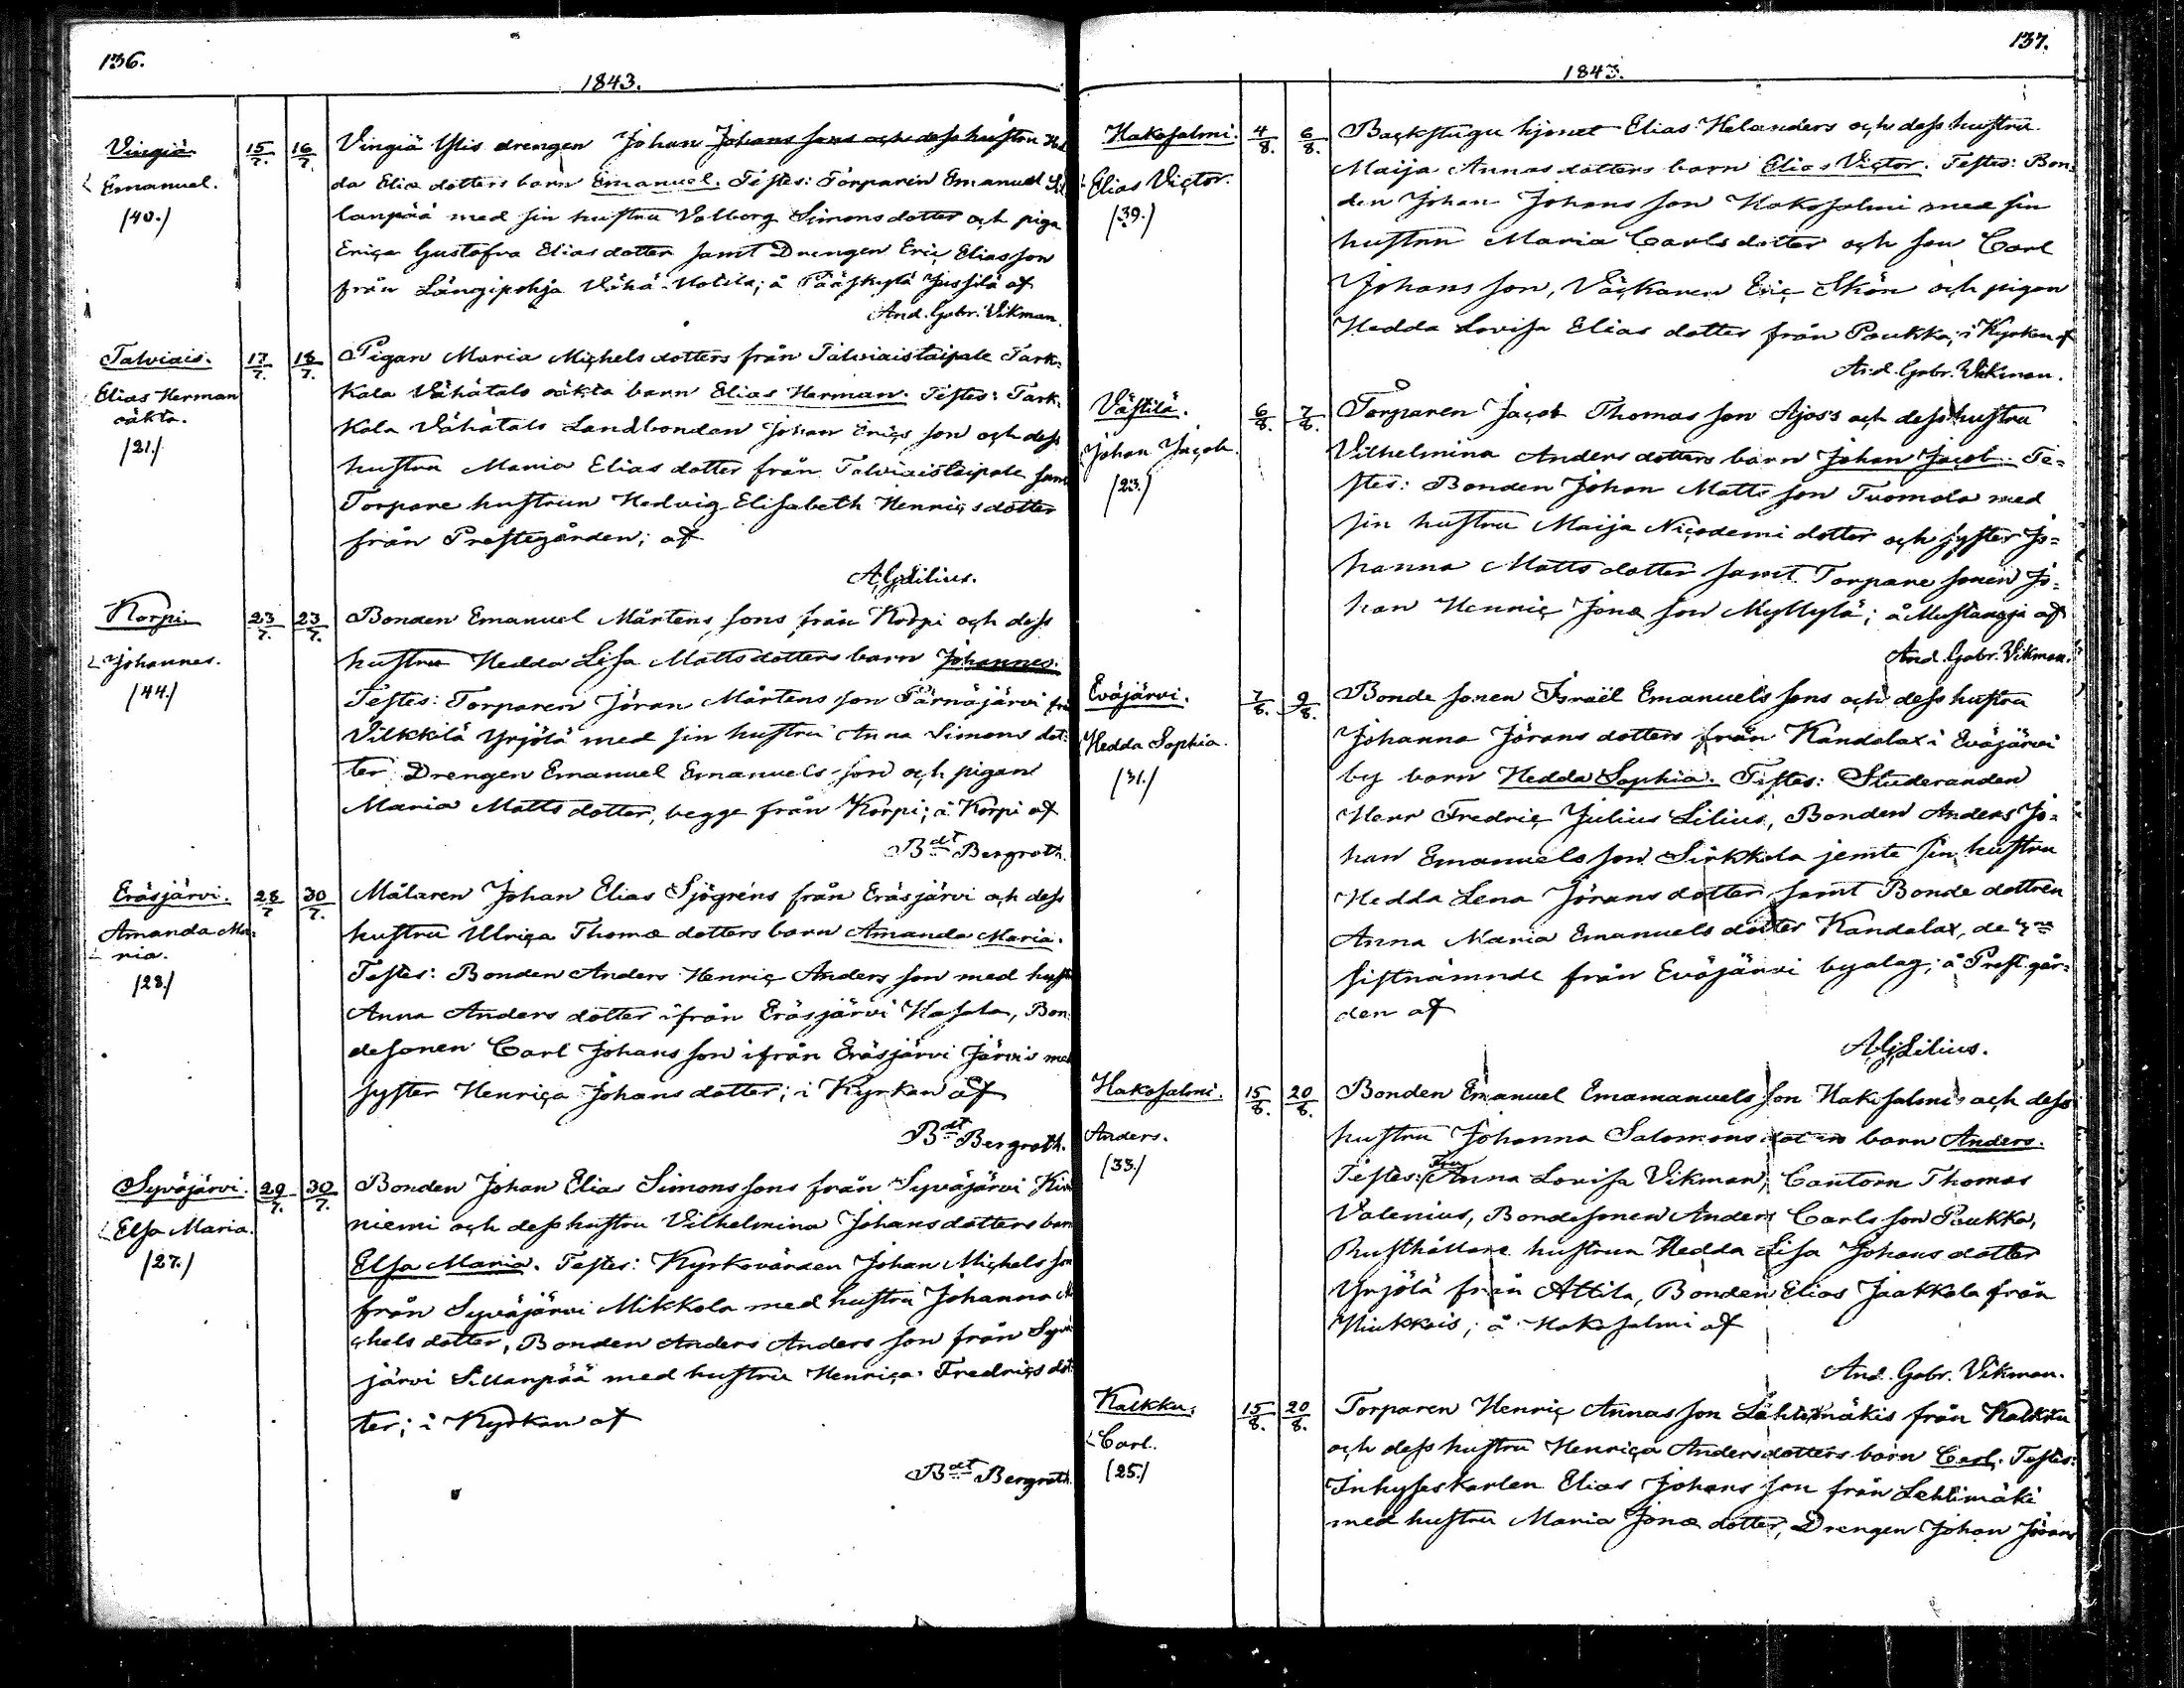 136.
1843.
Vingiä
Emanuel.
/40./
15/7. 16/7.
Vingiä Ylis drengen Johan Johans sons och dess hustru Hed
da Eliæ dotters barn Emanuel. Testes: Torparen Emanuel Sil
lanpää med sin hustru Valborg Simons dotter och piga
Erica Gustafva Elias dotter samt Drengen Eric Elias son
från Längipohja Vähä-Uotila; å Pääskylä Jussila af
And. Gabr. Vikman.
Talviais.
Elias Herman
oäkta.
/21./
17/7. 18/7.
Pigan Maria Michels dotters från Talviaistaipale Tark-
kala Vähätalo oäkta barn Elias Herman. Testes: Tark-
kala Vähätalo Landbonden Johan Erics son och dess
hustru Maria Elias dotter från Talviaistaipale samt
Torpare hustrun Hedvig Elisabeth Henrics dotter
från Prestegården; af
A.G.Lilius.
Korpi.
Johannes.
/44./
23/7. 23/7.
Bonden Emanuel Mårtens sons från Korpi och dess
hustru Hedda Lisa Matts dotters barn Johannes.
Testes: Torparen Jöran Mårtens son Pärnäjärvi frå
Vilkkilä Yrjölä med sin hustru Anna Simons dot-
ter Drengen Emanuel Emanuels son och pigan
Maria Matts dotter, begge från Korpi; å Korpi af
Bdt Bergroth.
Eräsjärvi.
Amanda Ma-
ria.
/28./
28/7 30/7.
Målaren Johan Elias Sjögréns från Eräsjärvi och dess
hustru Ulrica Thomæ dotters barn Amanda Maria.
Testes: Bonden Anders Henric Anders son med hustr
Anna Anders dotter ifrån Eräsjärvi Hasala, Bon-
desonen Carl Johans son ifrån Eräsjärvi Järvis med
syster Henrica Johans dotter; i Kyrkan af
Bdt Bergroth.
Syväjärvi.
Elsa Maria.
/27./
29/7. 30/7.
Bonden Johan Elias Simons sons från Syväjärvi Kin
niemi och dess hustru Vilhelmina Johans dotters barn
Elsa Maria. Testes: Kyrkovärden Johan Michels son
från Syväjärvi Mikkola med hustru Johanna Mi
chels dotter, Bonden Anders Anders son från Syvä
järvi Sillanpää med hustru Henrica Fredrics dot-
ter; i Kyrkan af
Bdt Bergroth.
137.
1843.
Hakosalmi.
Elias Victor.
/39./
4/8. 6/8.
Backstugu hjonet Elias Helanders och dess hustru
Maija Annas dotters barn Elias Victor. Testes: Bon-
den Johan Johans son Hakosalmi med sin
hustru Maria Carls dotter och son Carl
Johans son, Väckaren Eric Skön och pigan
Hedda Lovisa Elias dotter från Paukka; i Kyrkan af
And. Gabr. Vikman.
Västilä.
Johan Jacob.
/23./
6/8. 7/8.
Torparen Jacob Thomas son Ajos's och dess hustru
Vilhelmina Anders dotters barn Johan Jacob. Te-
stes: Bonden Johan Matts son Tuomola med
sin hustru Maija Nicodemi dotter och syster Jo-
hanna Matts dotter samt Torpare sonen Jo-
han Henric Jonæ son Myllylä; å Mustanoja af
And. Gabr. Vikman.
Eväjärvi.
Hedda Sophia.
/31./
7/8. 9/8.
Bonde sonen Israël Emanuels sons och dess hustru
Johanna Jörans dotters från Kandolax i Eväjärvi
by barn Hedda Sophia. Testes: Studeranden
Herr Fredric Julius Lilius, Bonden Anders Jo-
han Emanuels son Sirkkola jemte sin hustru
Hedda Lena Jörans dotter samt Bonde dottren
Anna Maria Emanuels dotter Kandolax, de
sistnämnde från Eväjärvi byalag; å Prest går-
den af
A.G.Lilius.
Hakosalmi.
Anders.
/33./
15/8. 20/8.
Bonden Emanuel Emamanuels son Hakosalmi och dess
hustru Johanna Salomons dotters barn Anders.
Testes: Fru Anna Lovisa Vikman, Cantorn Thomas
Valenius, Bondesonen Anders Carls son Paukka,
Rusthållare hustrun Hedda Lisa Johans dotter
Yrjölä från Attila, Bonden Elias Jaakkola från
Niukkais; å Hakosalmi af
And. Gabr. Vikman.
Kalkku.
Carl.
/25./
15/8. 20/8.
Torparen Henric Annas son Lehtimäkis från Kalkku
och dess hustru Henrica Anders dotters barn Carl. Testes:
Inhyseskarlen Elias Johans son från Lehtimäki
med hustru Maria Jonæ dotter, Drengen Johan Jörans